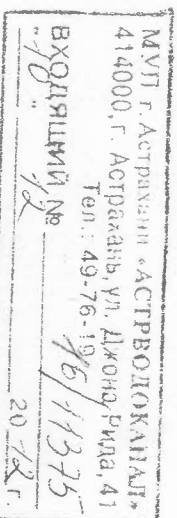 МУП г. Астрахани «АСТРВОДОКАНАЛ»
414000, г. Астрахань, ул. Джона Рида 41
Тел.: 49-76-19
ВХОДЯЩИЙ № 16/11375
"18" 12 2012 г.